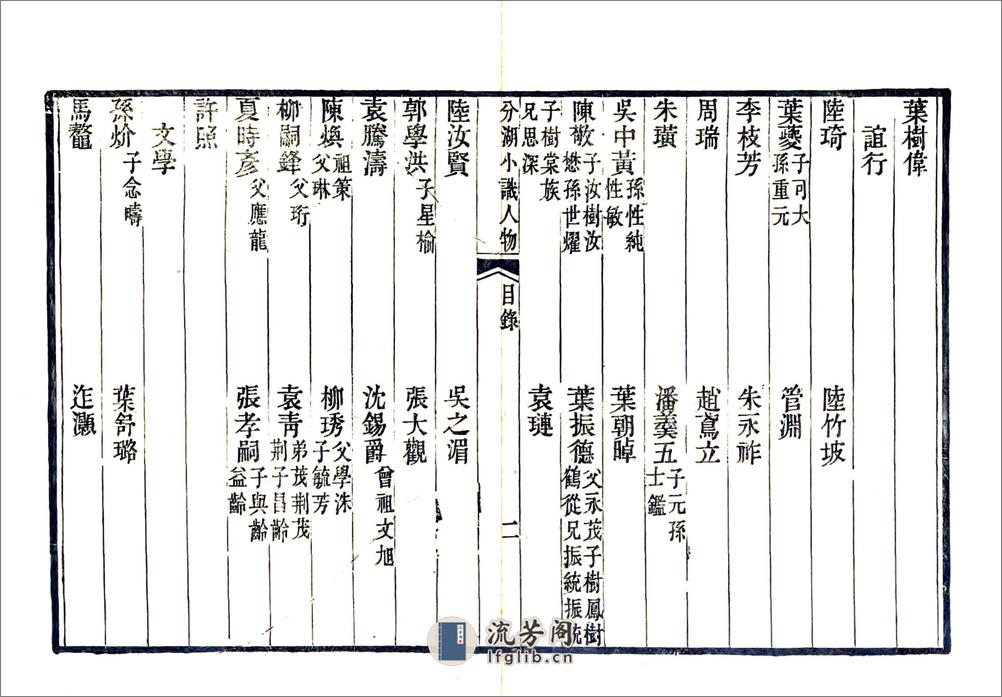 葉樹偉
誼行
陸琦 陸竹坡
葉夔子可大孫重元 管淵
李枝芳 朱永祚
周瑞 趙鳶立
朱璜 潘羮五子元孫士鑑
吳中黃孫性純性敏 葉朝晫
陳敬子汝樹汝懋孫世燿 葉振德父永茂子樹鳳樹鶴從兄振統振統
子樹棠族兄思深 袁璉
分湖小識人物 目錄 二
陸汝賢 吳之湄
郭學洪子星榆 張大觀
袁騰濤 沈錫爵曾祖文旭
陳煥祖策父琳 柳琇父學洙子毓芳
柳嗣鋒父珩 袁青弟茂荆茂荆子昌齡
夏時彥父應龍 張孝嗣子與齡益齡
許照
文學
孫炌子念疇 葉舒璐
馬鼇 迮灝
流芳阁
lfglib.cn